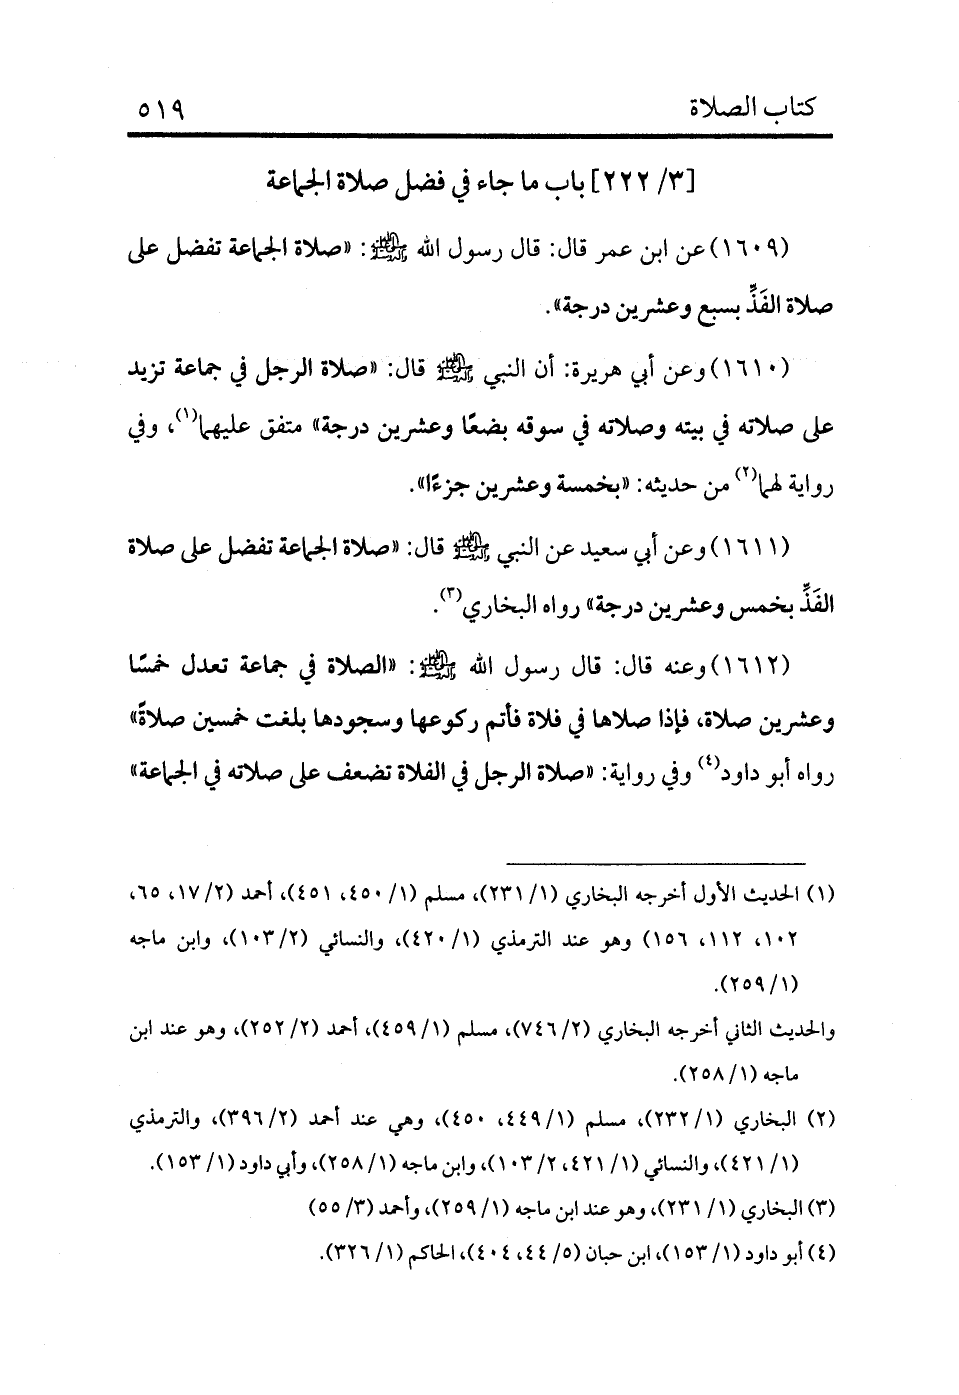 كتاب الصلاة ٥١٩
[٣/ ٢٢٢] باب ما جاء في فضل صلاة الجماعة
(١٦٠٩) عن ابن عمر قال: قال رسول الله ﷺ: «صلاة الجماعة تفضل على
صلاة الفَذِّ بسبع وعشرين درجة».
(١٦١٠) وعن أبي هريرة: أن النبي ﷺ قال: «صلاة الرجل في جماعة تزيد
على صلاته في بيته وصلاته في سوقه بضعًا وعشرين درجة» متفق عليهما(١)، وفي
رواية لهما(٢) من حديثه: «بخمسة وعشرين جزءًا».
(١٦١١) وعن أبي سعيد عن النبي ﷺ قال: «صلاة الجماعة تفضل على صلاة
الفَذِّ بخمس وعشرين درجة» رواه البخاري(٣).
(١٦١٢) وعنه قال: قال رسول الله ﷺ: «الصلاة في جماعة تعدل خمسًا
وعشرين صلاة، فإذا صلاها في فلاة فأتم ركوعها وسجودها بلغت خمسين صلاةً»
رواه أبو داود(٤) وفي رواية: «صلاة الرجل في الفلاة تضعف على صلاته في الجماعة»
(١) الحديث الأول أخرجه البخاري (١/ ٢٣١)، مسلم (١/ ٤٥٠، ٤٥١)، أحمد (٢/ ١٧، ٦٥،
١٠٢، ١١٢، ١٥٦) وهو عند الترمذي (١/ ٤٢٠)، والنسائي (٢/ ١٠٣)، وابن ماجه
(١/ ٢٥٩).
والحديث الثاني أخرجه البخاري (٢/ ٧٤٦)، مسلم (١/ ٤٥٩)، أحمد (٢/ ٢٥٢)، وهو عند ابن
ماجه (١/ ٢٥٨).
(٢) البخاري (١/ ٢٣٢)، مسلم (١/ ٤٤٩، ٤٥٠)، وهي عند أحمد (٢/ ٣٩٦)، والترمذي
(١/ ٤٢١)، والنسائي (١/ ٤٢١، ٢/ ١٠٣)، وابن ماجه (١/ ٢٥٨)، وأبي داود (١/ ١٥٣).
(٣) البخاري (١/ ٢٣١)، وهو عند ابن ماجه (١/ ٢٥٩)، وأحمد (٣/ ٥٥)
(٤) أبو داود (١/ ١٥٣)، ابن حبان (٥/ ٤٤، ٤٠٤)، الحاكم (١/ ٣٢٦).